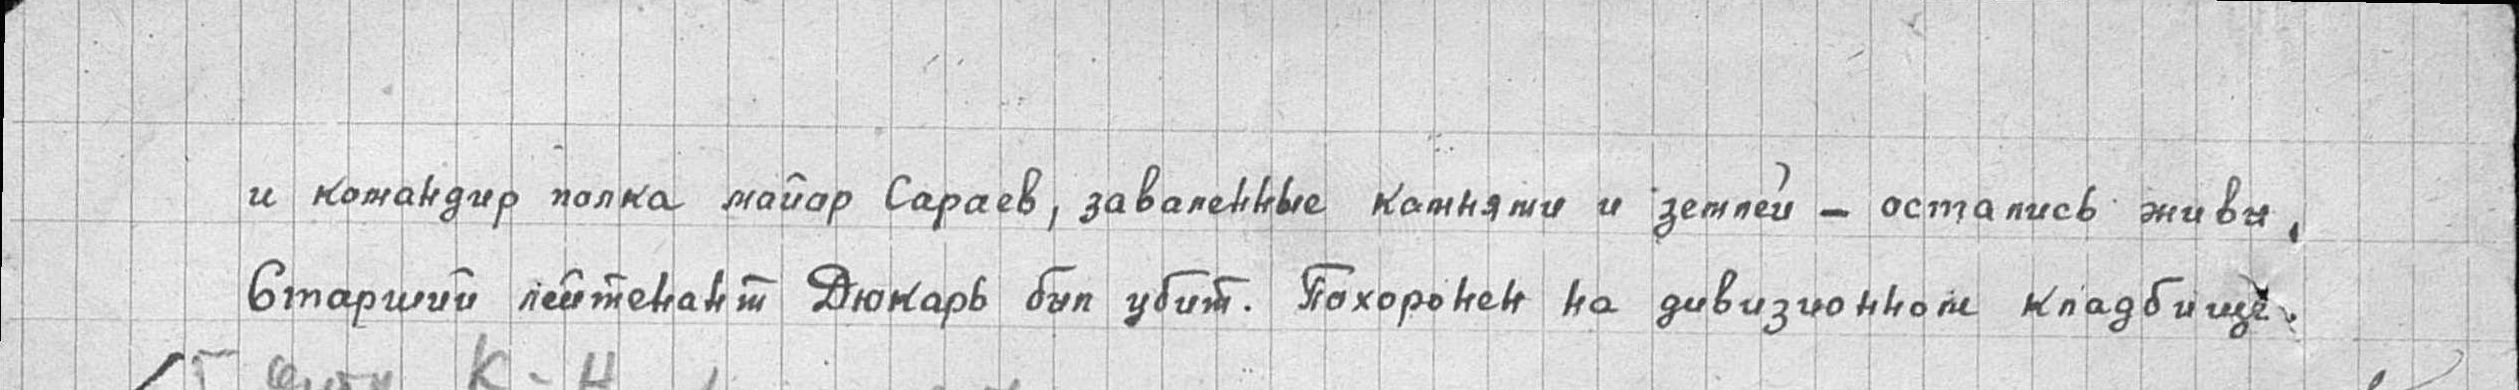 и командир полка майор Сараев, заваленные камнями и землей – остались живы,
Старший лейтенант Дюкарь был убит. Похоронен на дивизионном кладбище.
К-н